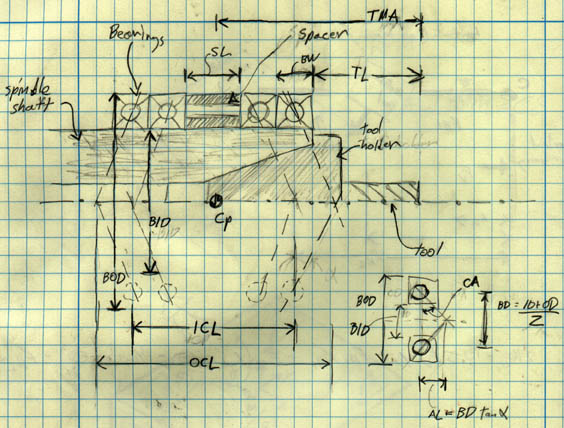 TMA
Bearings
SL
Spacer
BW
TL
spindle
shaft
tool
holder
Cp
BID
BOD
tool
CA
BOD
BID
BD = ID+OD
2
ICL
OCL
AL = BD tan α